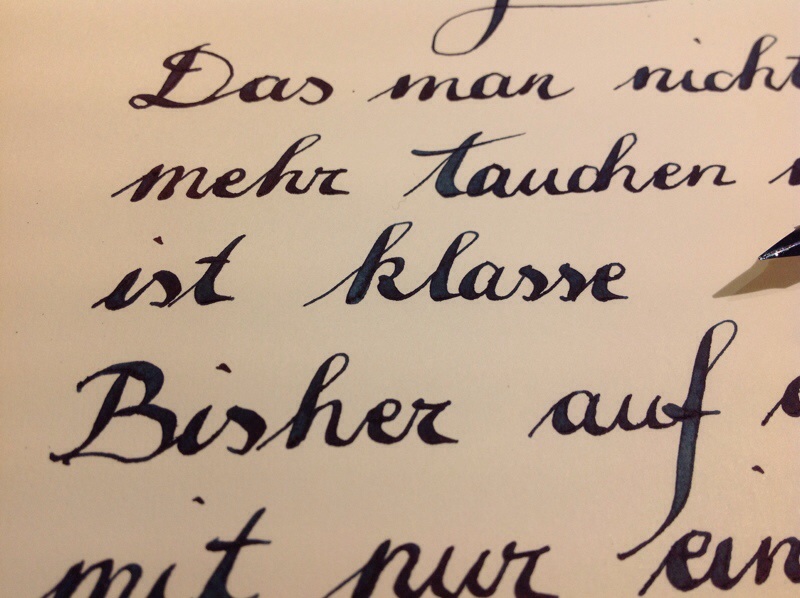 Das man nicht
mehr tauchen
ist klasse
Bisher auf
mit nur ein